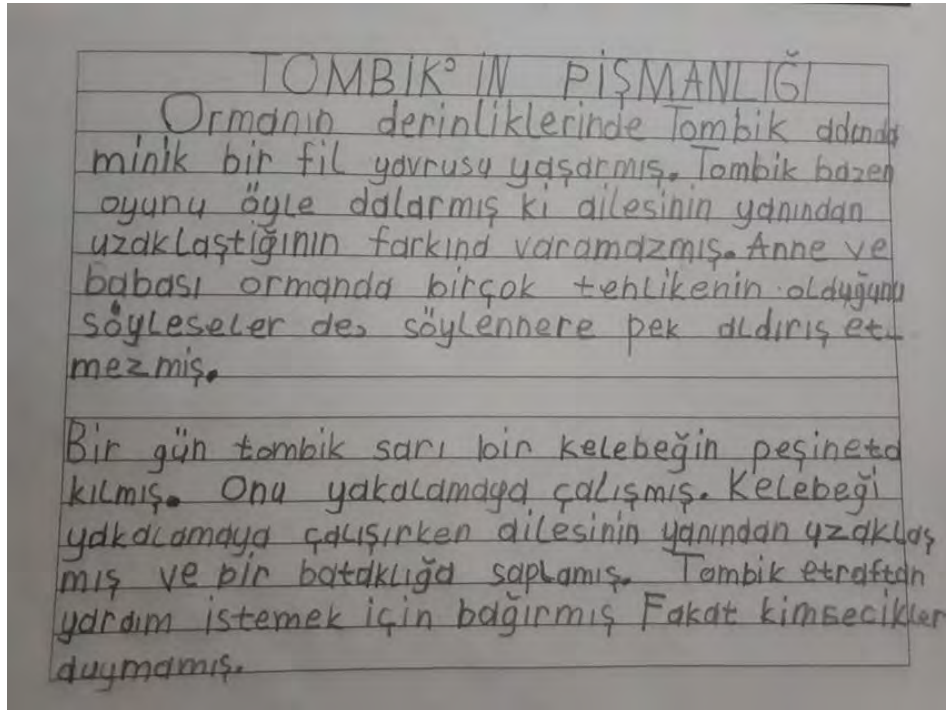 TOMBİK'İN PİŞMANLIĞI
Ormanın derinliklerinde Tombik adında
minik bir fil yavrusu yaşarmış. Tombik bazen
oyunu öyle dalarmış ki ailesinin yanından
uzaklaştiğının farkınd varamazmış. Anne ve
babası ormanda birçok tehlikenin olduğunu
söyleseler de, söylennere pek aldırış et-
mezmiş.
Bir gün tombik sarı bir kelebeğin peşineta
kılmış. Onu yakalamaya çalışmış. Kelebeği
yakalamaya çalışırken ailesinin yanından uzaklaş
mış ve bir bataklığa saplamış. Tombik etraftan
yardım istemek için bağırmış Fakat kimsecikler
duymamış.